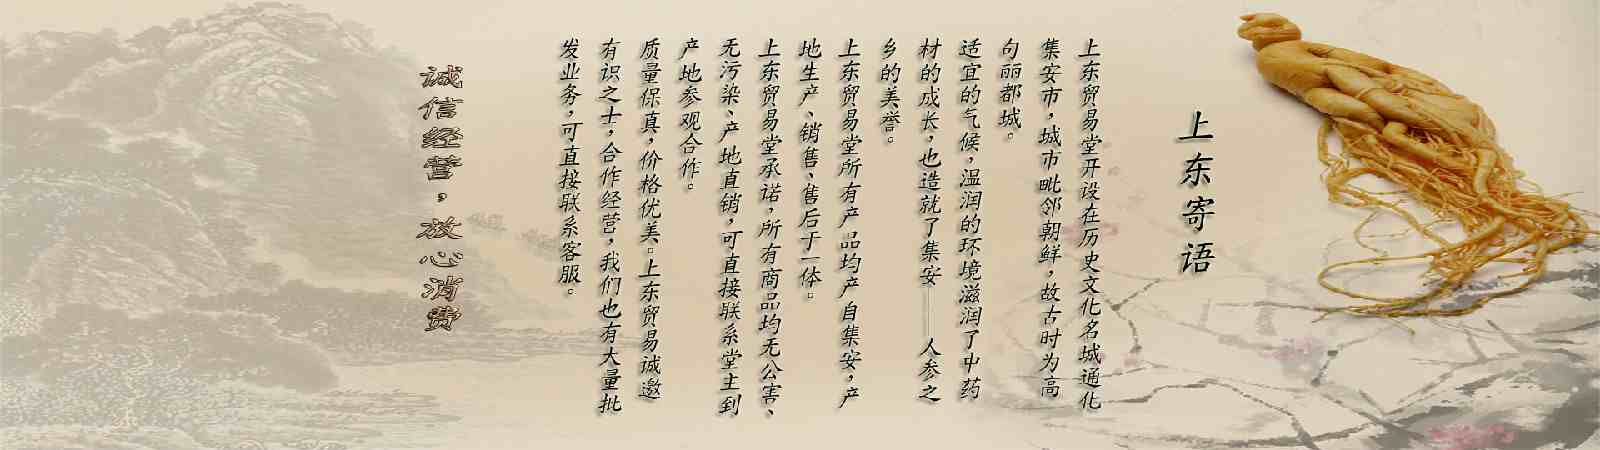 上东寄语
上东贸易堂开设在历史文化名城通化
集安市，城市毗邻朝鲜，故古时为高
句丽都城。
适宜的气候，温润的环境滋润了中药
材的成长，也造就了集安——人参之
乡的美誉。
上东贸易堂所有产品均产自集安，产
地生产、销售、售后于一体。
上东贸易堂承诺，所有商品均无公害、
无污染、产地直销，可直接联系堂主到
产地参观合作。
质量保真，价格优美。上东贸易诚邀
有识之士，合作经营，我们也有大量批
发业务，可直接联系客服。
诚信经营，放心消费